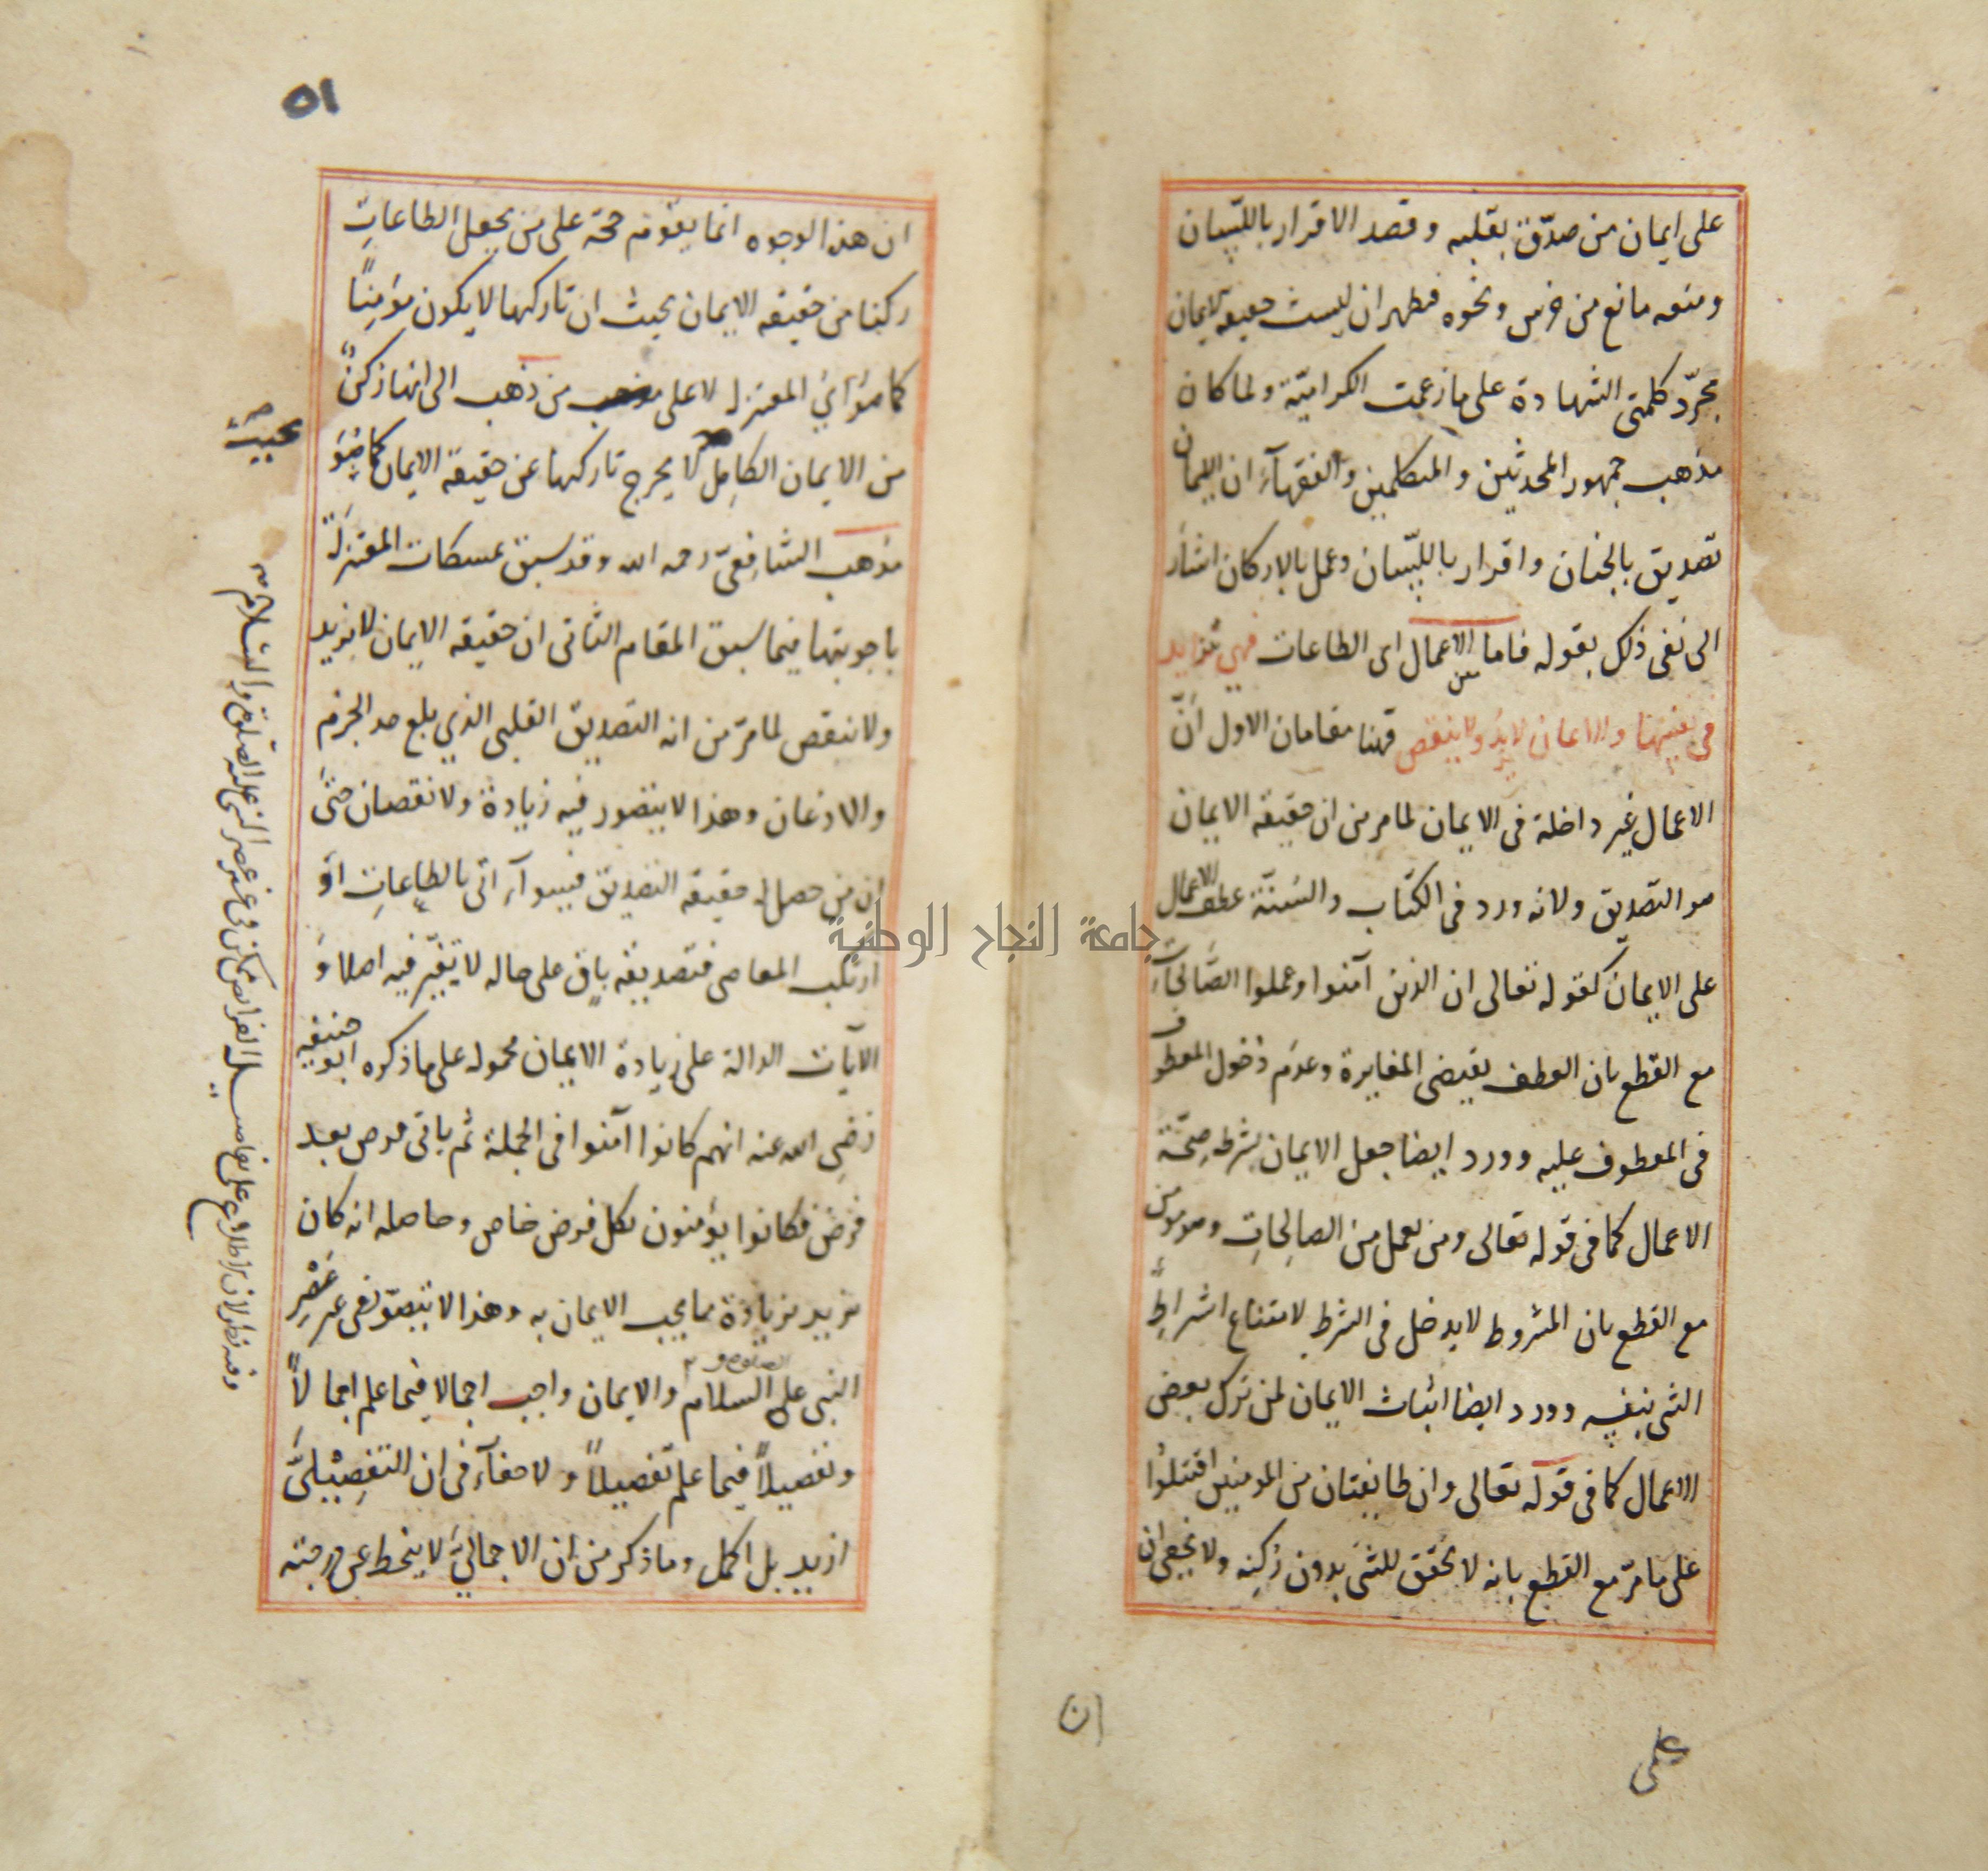 على ايمان من صدّق بقلبه وقصد الاقرار باللّسان
ومنعه مانع من خرس ونحوه فظهر ان ليست حقيقة الايمان
مجرّد كلمتى الشهادة على ما زعمت الكراميّة ولما كان
مذهب جمهور المحدثين والمتكلمين والفقهآء ان الايمان
تصديق بالجنان واقرار باللّسان وعمل بالاركان اشار
الى نفى ذلك بقوله فاما الاعمال اى الطاعات فهى تتزايد
فى نفسها والايمان لا يزيد ولا ينقص فهنا مقامان الاول أنّ
الاعمال غير داخلة فى الايمان لما مر من ان حقيقة الايمان
هو التصديق ولانه ورد فى الكتاب والسّنّة عطف الاعمال
على الايمان كقوله تعالى ان الذين آمنوا وعملوا الصّالحات
مع القطع بان العطف يقتضى المغايرة وعدم دخول المعطوف
فى المعطوف عليه وورد ايضا جعل الايمان شرط صحّة
الاعمال كما فى قوله تعالى ومن يعمل من الصالحات وهو مومن
مع القطع بان المشروط لا يدخل فى الشرط لامتناع اشتراط
الشى بنفسه وورد ايضا اثبات الايمان لمن ترك بعض
الاعمال كما فى قوله تعالى وان طايفتان من المومنين اقتتلوا
على ما مرّ مع القطع بانه لا تحقق للشئ بدون ركنه ولا يخفى ان
على
٥١
ان هذه الوجوه انما يقوم حجة على من يجعل الطاعات
ركنا من حقيقة الايمان بحيث ان تاركها لا يكون مؤمناً
كما هو رأي المعتزلة لا على من ذهب الى انها ركن
من الايمان الكامل لا يخرج تاركها عن حقيقة الايمان كما هو
مذهب الشافعىّ رحمه الله وقد سبق تمسكات المعتزلة
باجوبتها فيما سبق المقام الثانى ان حقيقة الايمان لا يزيد
ولا ينقص لما مرّ من انه التصديق القلبى الذي بلغ حد الجزم
والاذعان وهذا لا يتصور فيه زيادة ولا نقصان حتى
ان من حصل له حقيقة التصديق فسوآء اتى بالطاعات او
ارتكب المعاصى فتصديقه باق على حاله لا تغيّر فيه اصلا و
الآيات الدالة على زيادة الايمان محمولة على ما ذكره ابو حنيفة
رضى الله عنه انهم كانوا آمنوا فى الجملة ثم ياتى فرض بعد
فرض فكانوا يؤمنون بكل فرض خاص وحاصله انه كان
يزيد بزيادة ما يجب الايمان به وهذا لا يتصوّر فى غير عصر
النبى عليه الصلوة و السلام والايمان واجب اجمالا فيما علم اجمالاً
وتفصيلاً فيما علم تفصيلاً ولا خفآء فى ان التفصيلىّ
ازيد بل اكمل وما ذكر من ان الاجمالىّ لا ينحط عن درجته
ان
بحيث
وفيه نظر لان الاطلاع على تفاصيل الفرائض يمكن فى غير عصر النبى عليه الصلوة والسلام
جامعة النجاح الوطنية